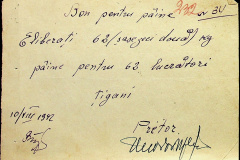 Bon pentru pâine 932 № 30
Eliberați 62/șasezeci două/ kg
pâine pentru 62 lucrători
Țigani
10/VIII 1942
Pretor